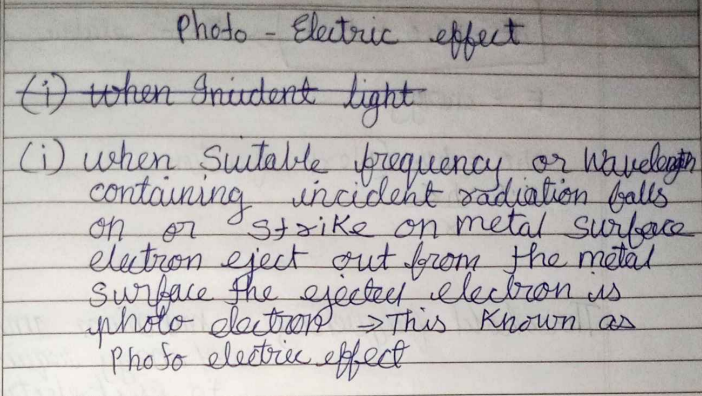 Photo - Electric effect
(i) when Inident light
(i) when Suitable frequency or Wavelength
containing incident radiation falls
on or strike on metal surface
electron eject out from the metal
surface the ejected electron is
photo electron → This Known as
Photo electric effect